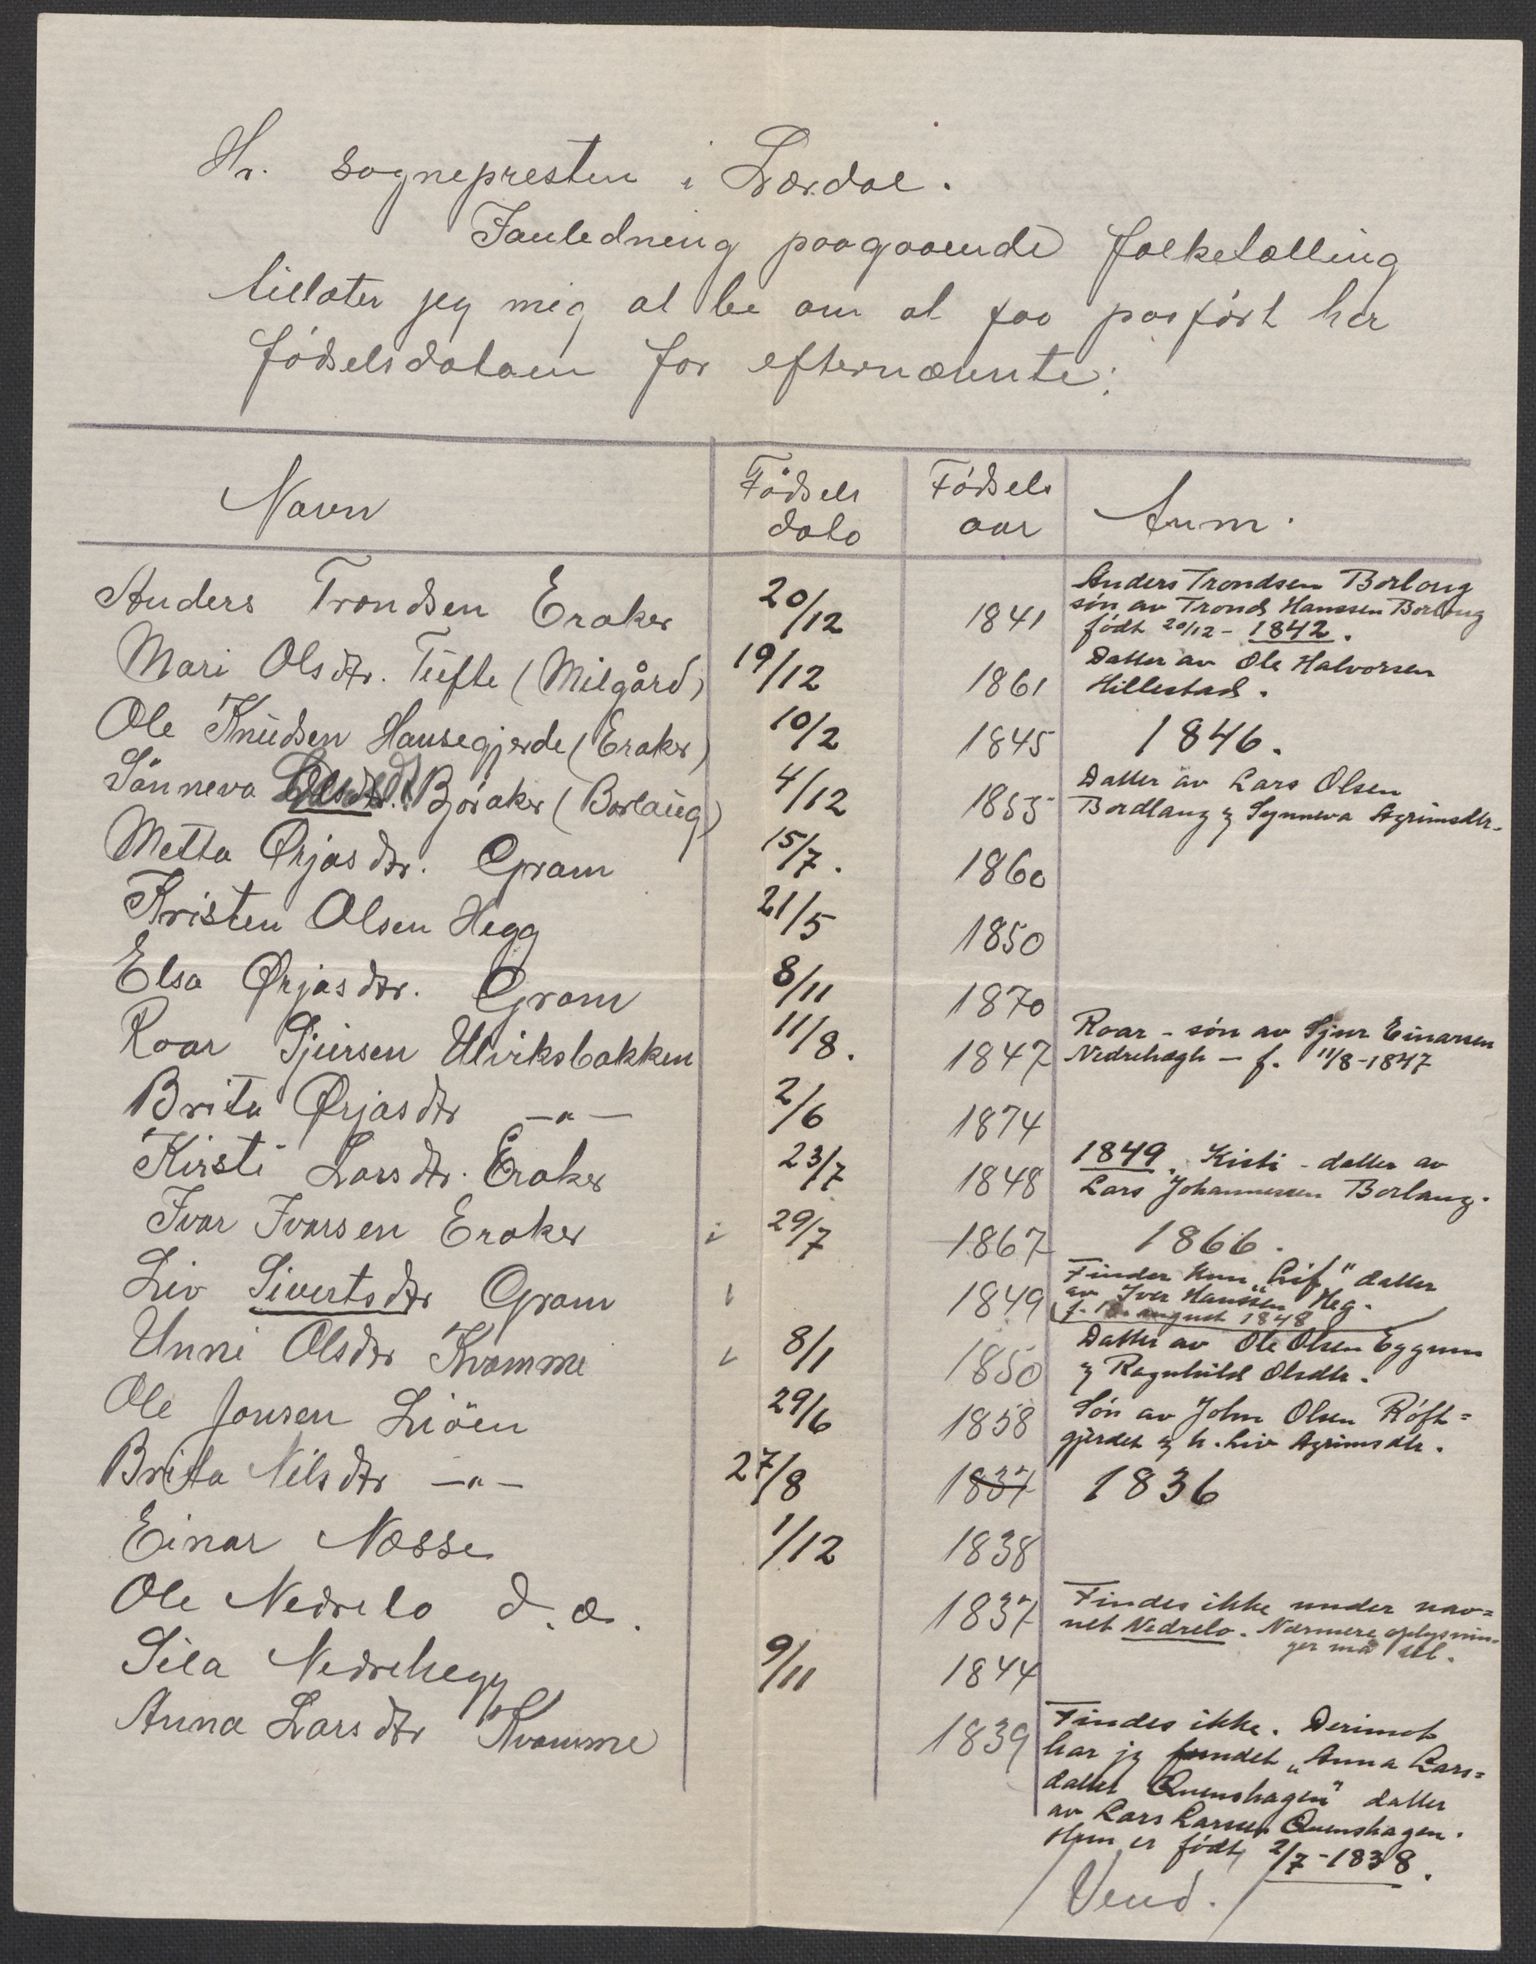 Hr. sognepresten i Lærdal.
I anledning paagaaende folketælling
tillater jeg mig at be om at faa paaført her
fødselsdatoen for efternævnte:
Navn Fødsels dato Fødsels aar Anm.
Anders Trondsen Eraker 20/12 1841 Anders Trondsen Borloug
søn av Trond Hanssen Borloug
født 20/12 - 1842.
Mari Olsdtr. Tufte (Milgård) 19/12 1861 Datter av Ole Halvorsen
Hillestad.
Ole Knudsen Hausegjerde (Eraker) 10/2 1845 1846.
Sönneva Bjøraker (Borlaug) 4/12 1855 Datter av Lars Olsen
Bordlaug & Synneva Agrimsdtr.
Metta Ørjasdtr. Gram 15/7. 1860
Kristen Olsen Hegg 21/5 1850
Elsa Ørjasdtr. Gram 8/11 1870
Roar Sjursen Ulviksbakken 11/8. 1847 Roar - søn av Sjur Einarsen
Nedrehægh - f. 11/8-1847
Brita Ørjasdtr -"- 2/6 1874
Kirsti Larsdtr. Eraker 23/7 1848 1849. Kisti - datter av
Lars Johannessen Borlaug.
Ivar Ivarsen Eraker i 29/7 1867 1866.
Liv Sivertsdtr Gram i 1849 Finder kun "Lif" datter
av Iver Hanssen Heg.
f. august 1848
Unni Olsdtr Kvamme i 8/1 1850 Datter av Ole Olsen Eggum
& Ragnhild Olsdtr.
Ole Jonsen Liöen 29/6 1858 Søn av John Olsen Røft=
gjerdet & h. Liv Agrimsdtr.
Brita Nilsdtr -"- 27/8 1837 1836
Einar Næsse 1/12 1838
Ole Nedrelo d. æ. 1837 Findes ikke under nav=
net Nedrelo. Nærmere oplysnin=
ger må til.
Sila Nedrehegg 9/11 1844
Anna Larsdtr Kvamme 1839 Findes ikke. Derimot
har jeg fundet "Anna Lars=
datter Qvenshagen" datter
av Lars Larsen Qvenshagen.
Hun er født 2/7-1838.
/ Vend. /